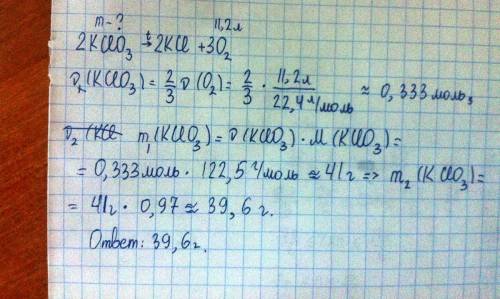 m-? 11,2л
2KClO₃ →ᵗ 2KCl + 3O₂
ν₁(KClO₃) = 2/3 ν(O₂) = 2/3 · 11,2л / 22,4 л/моль ≈ 0,333 моль,
ν₂(KCl m₁(KClO₃) = ν(KClO₃) · M(KClO₃) =
= 0,333 моль · 122,5 г/моль ≈ 41г => m₂(KClO₃) =
= 41г · 0,97 ≈ 39,6 г.
Ответ: 39,6г.